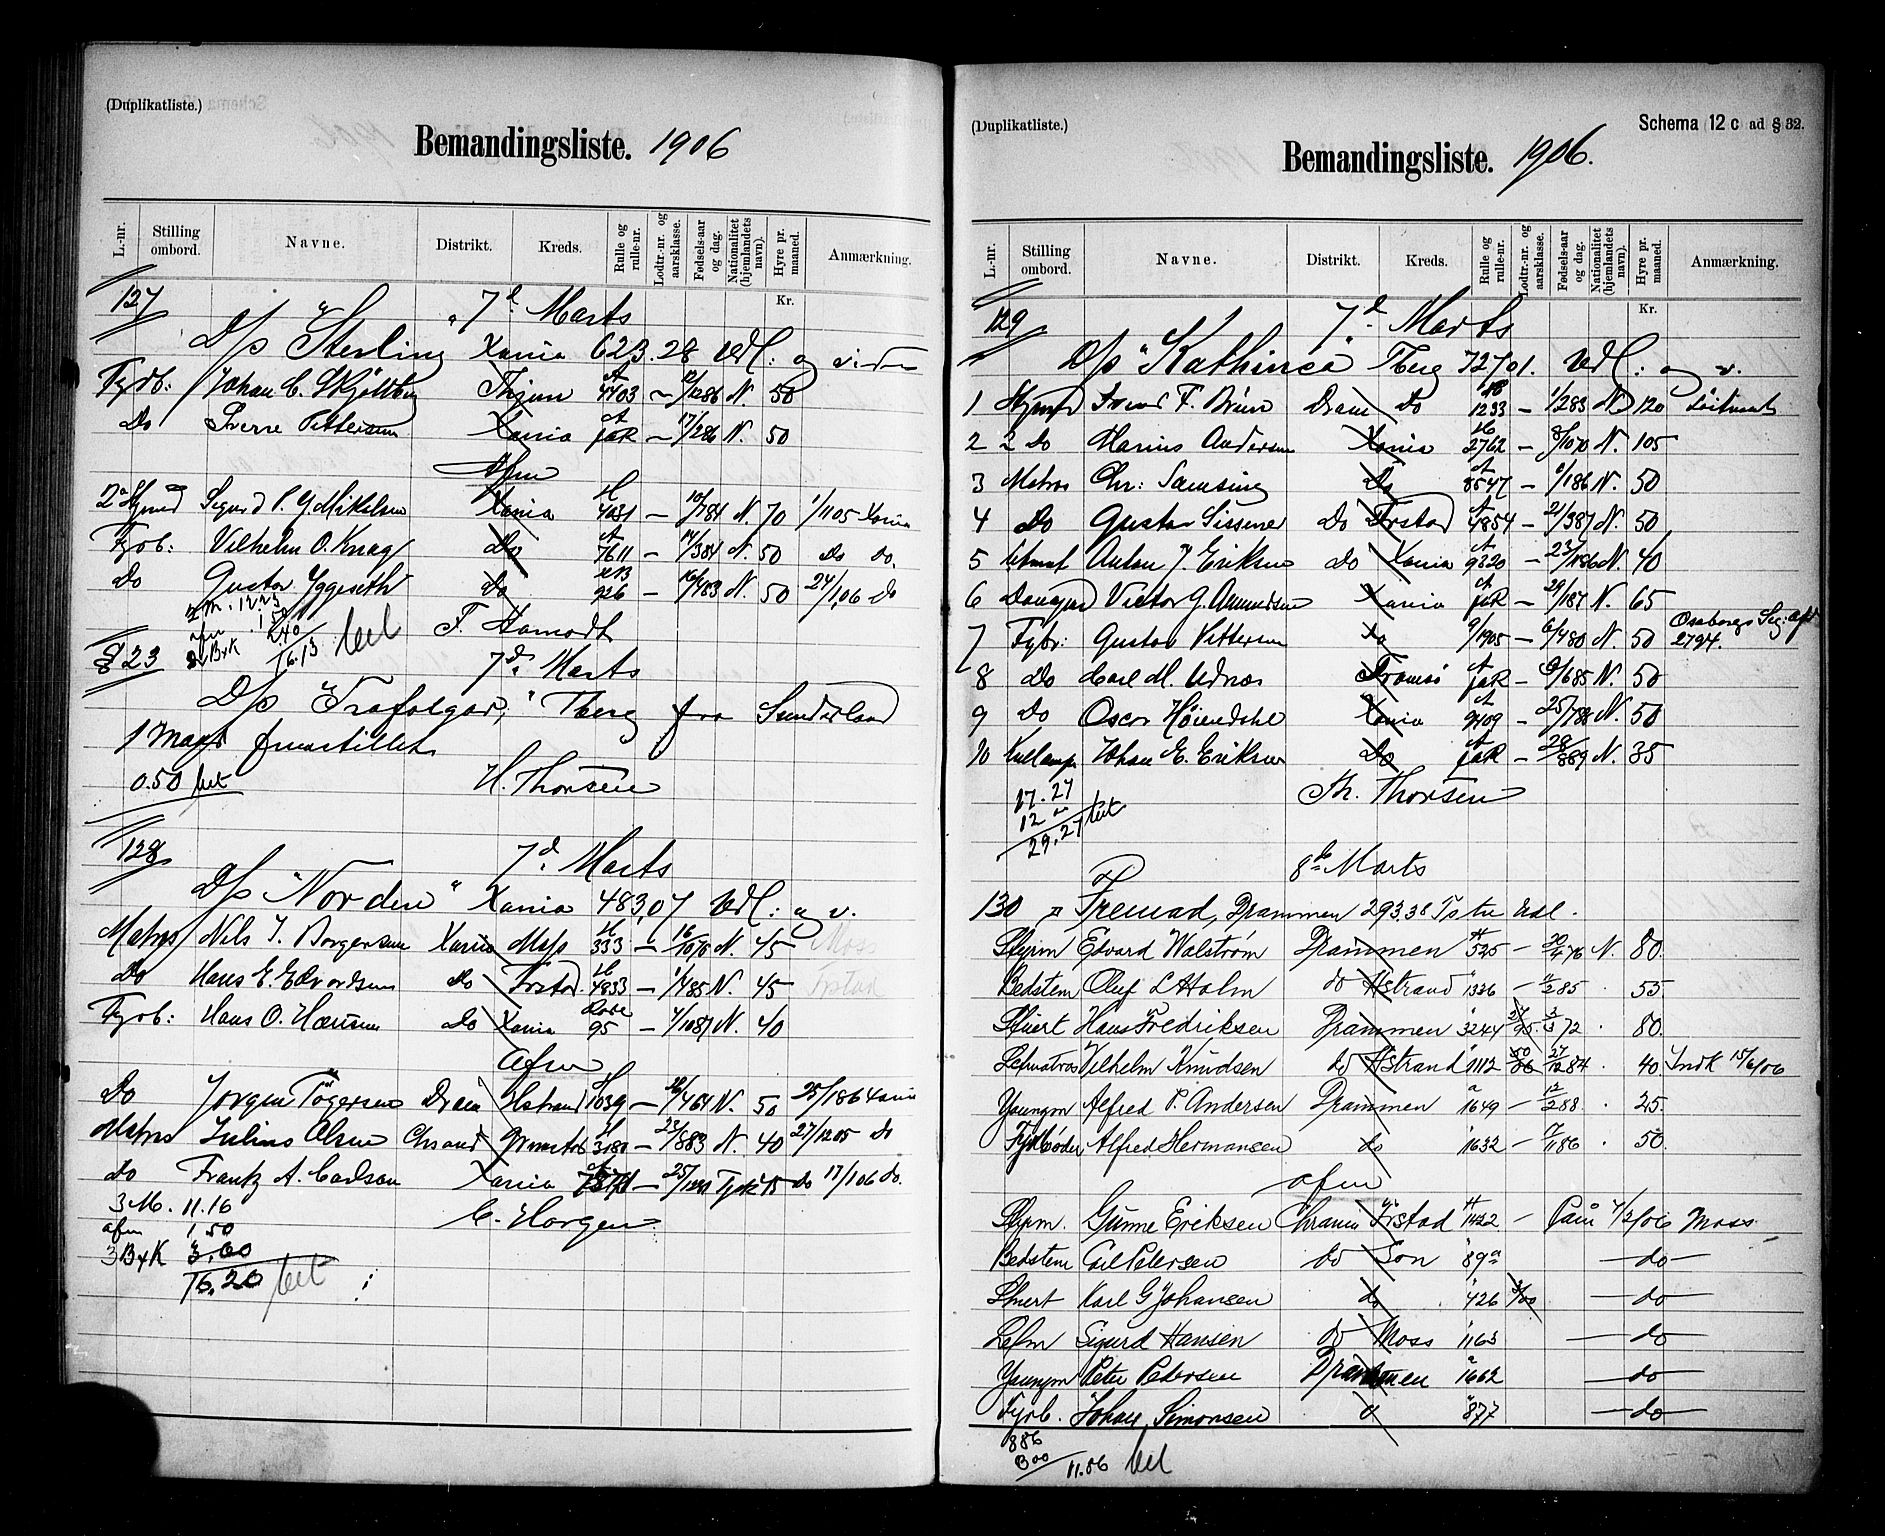 (Duplikatliste.)
Bemandingsliste. 1906
L.-nr. Stilling ombord. Navne. Distrikt. Kreds. Rulle og rulle-nr. Lodtr.-nr. og aarsklasse. Fødsels-aar og dag. Nationalitet (hjemlandets navn). Hyre pr. maaned. Anmærkning.
Kr.
127 7d Marts
D/s "Sterling" Xania 623.28 Udl: og videre
Fyrb: Johan C. 4403 — N. 50
Do Sverre Pettersen Xania A JaR — 17/286 N. 50
Afm
2 Stymd Sigurd P. G. Mikelsen Xania H 4031 — 10/784 N. 70 1/1105 Xania
Fyrb: Vilhelm O. Knag Do A 7611 — 14/384 N. 50 Do Do.
Do Gustav Yggeseth Do 926 — 16/483 N. 50 24/1,06 Do
2 M. 12.23
afm 1.50
2 B&K 2.40
16.13 bet
F. Aamodt
§ 23 7d Marts
D/s "Trafalgar," Tberg fra Sunderland
1 Mand fraastillet
0.50 bet H. Thorsen
128 7d Marts
D/s "Norden" Xania 483,07 Udl: og v.
Matros Nils J. Borgersen Xania Moss H 333 — 16/1075 N. 45 Moss
Do Hans E. Edvardsen do Frstad H 4833 — 1/485 N. 45 Frstad
Fyrb: Hans O. Hansen Do Xania 95 — 4/1087 N. 40
Afm
Do Jørgen Tøgersen Dram Hstrand 1039 — /464 N. 50 25/186 Xania
Matros Julius Olsen Chrsand Grmstad H 3180 — 22/883 N. 40 27/1205 Do
do Frantz A. Carlsen Xania — 25/ Tysk 45 do 17/106 do.
3 M. 11.16
afm 1.50
3 B&K 3.60
16.20 bet
C. Horgen
(Duplikatliste.)
Schema 12 c ad § 32.
Bemandingsliste. 1906.
L.-nr. Stilling ombord. Navne. Distrikt. Kreds. Rulle og rulle-nr. Lodtr.-nr. og aarsklasse. Fødsels-aar og dag. Nationalitet (hjemlandets navn). Hyre pr. maaned. Anmærkning.
Kr.
129 7d Marts
D/s "Kathinca" Tberg 727,01. Udl: og v.
1 Stymd F. Bruu Dram Do 1233 — 1/283 N. 120
2 2 Do Marius Andersen Xania H 2762 — 8/1070 N. 105
3 Matros Chr: Samsing Do A 8547 — /186 N. 50
4 Do Gustav Sissener Do Frstad A 4854 — 21/387 N. 50
5 Letmat Anton J. Eriksen do Xania A 9320 — 23/ N. 40
6 Donqmd Victor G. Amundsen Xania A JaR — 29/187 N. 65
7 Fybr: Gustav Pettersen Do 9/1905 — 6/480 N. 50 2794.
8 Do Carl M. Udnæs Tromsø A JaR — /685 N. 50
9 Do Oscar Høiendahl Xania A 9409 — 25/788 N. 50
10 Johan E. Eriksen Do A JaR — 29/889 N. 35
17.27
12 "
29.27 bet
Th. Thorsen
8de Marts
130 Fremad, Drammen 293.38 Tstr Udl.
Styrm Edvard Walstrøm Drammen 525 — 20/4 76 N. 80.
Bedstem Oluf L Holm do Hstrand 1326 — 11/2 85 . 55
Stuert Hans Fredriksen Drammen 3244 24/95 . 3/3 72 . 80.
Letmatros Vilhelm Knudsen do Hstrand 1112 50/06 27/12 84 . 40 Indk 15/6/06
Youngm Alfred P. Andersen Drammen a 1649 — 12/2 88 . 25.
Fyrbøder Alfred Hermansen do 1632 — 86 . 50.
afm
Styrm. Gunne Eriksen Chrania Frstad H 1422 — Paam 4/2/06 Moss
Bedstem Carl Petersen do Son 89a — do —
Stuert Karl G Johansen do 426 — do —
Letm Sigurd Hansen do Moss 1163 — do —
Youngm Peter Petersen Drammen a 1662 — do —
Fyrb. Johan Simonsen d 877 — do —
886
3 00
11.86 bet